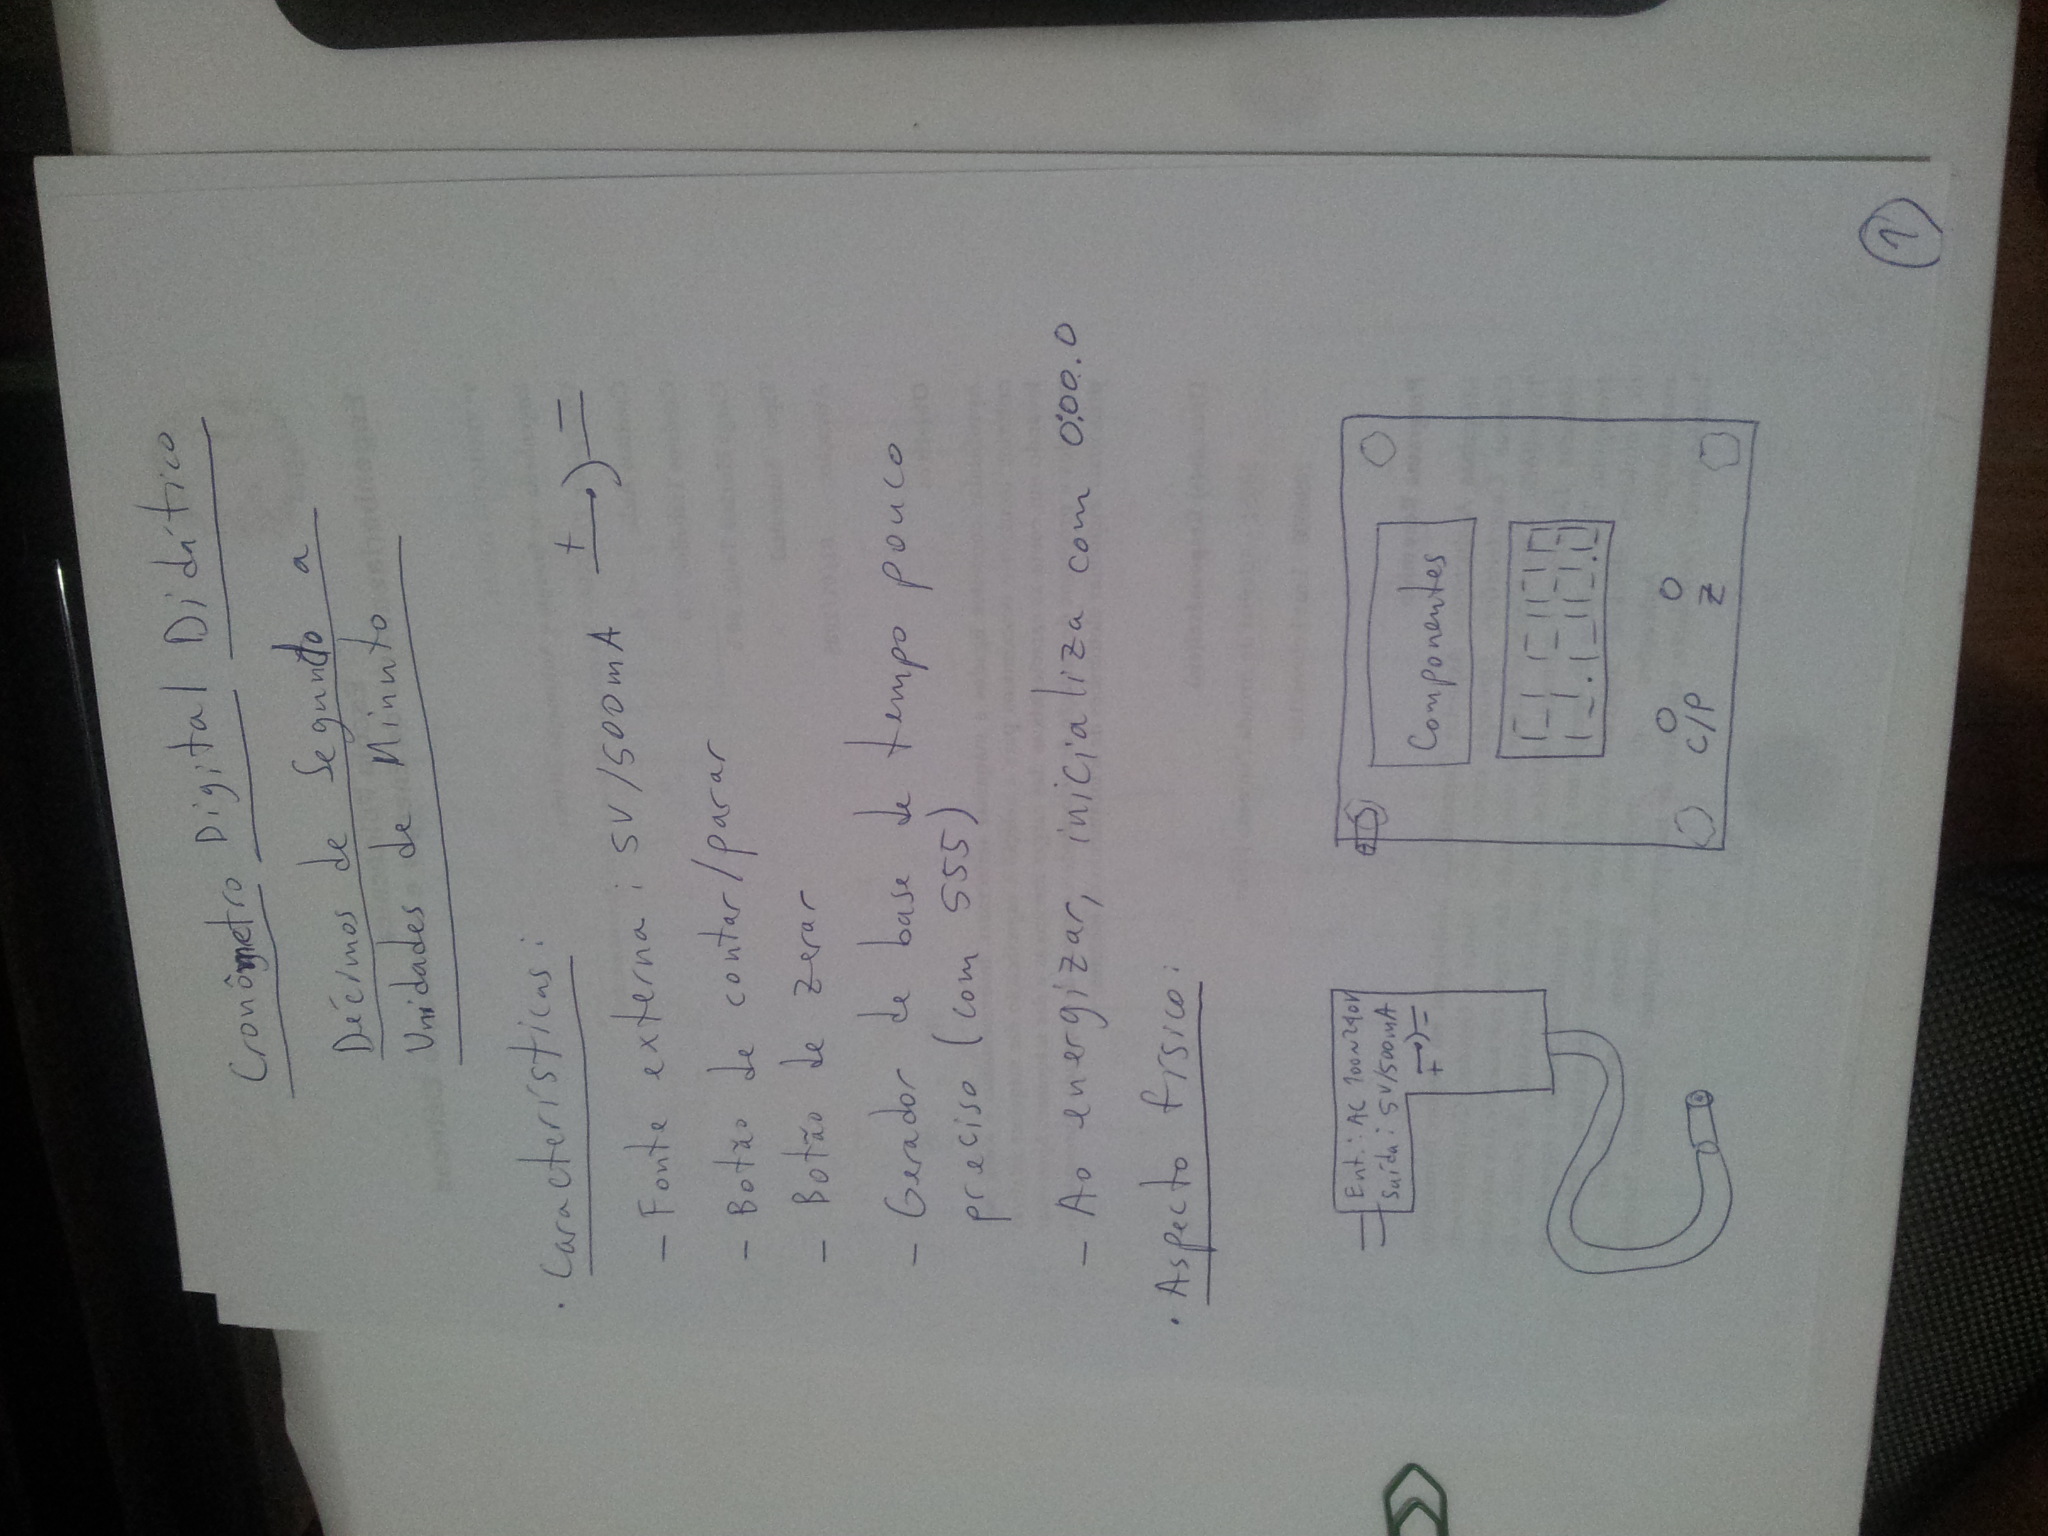 Cronômetro Digital Didático
Décimos de Segundo a
Unidades de Minuto
· Características:
- Fonte externa: 5V/500mA + -
- Botão de contar/parar
- Botão de zerar
- Gerador de base de tempo pouco
preciso (com 555)
- Ao energizar, inicializa com 0:00.0
· Aspecto físico:
Ent.: AC 100~240V
Saída: 5V/500mA
+
Componentes
C/P Z
1